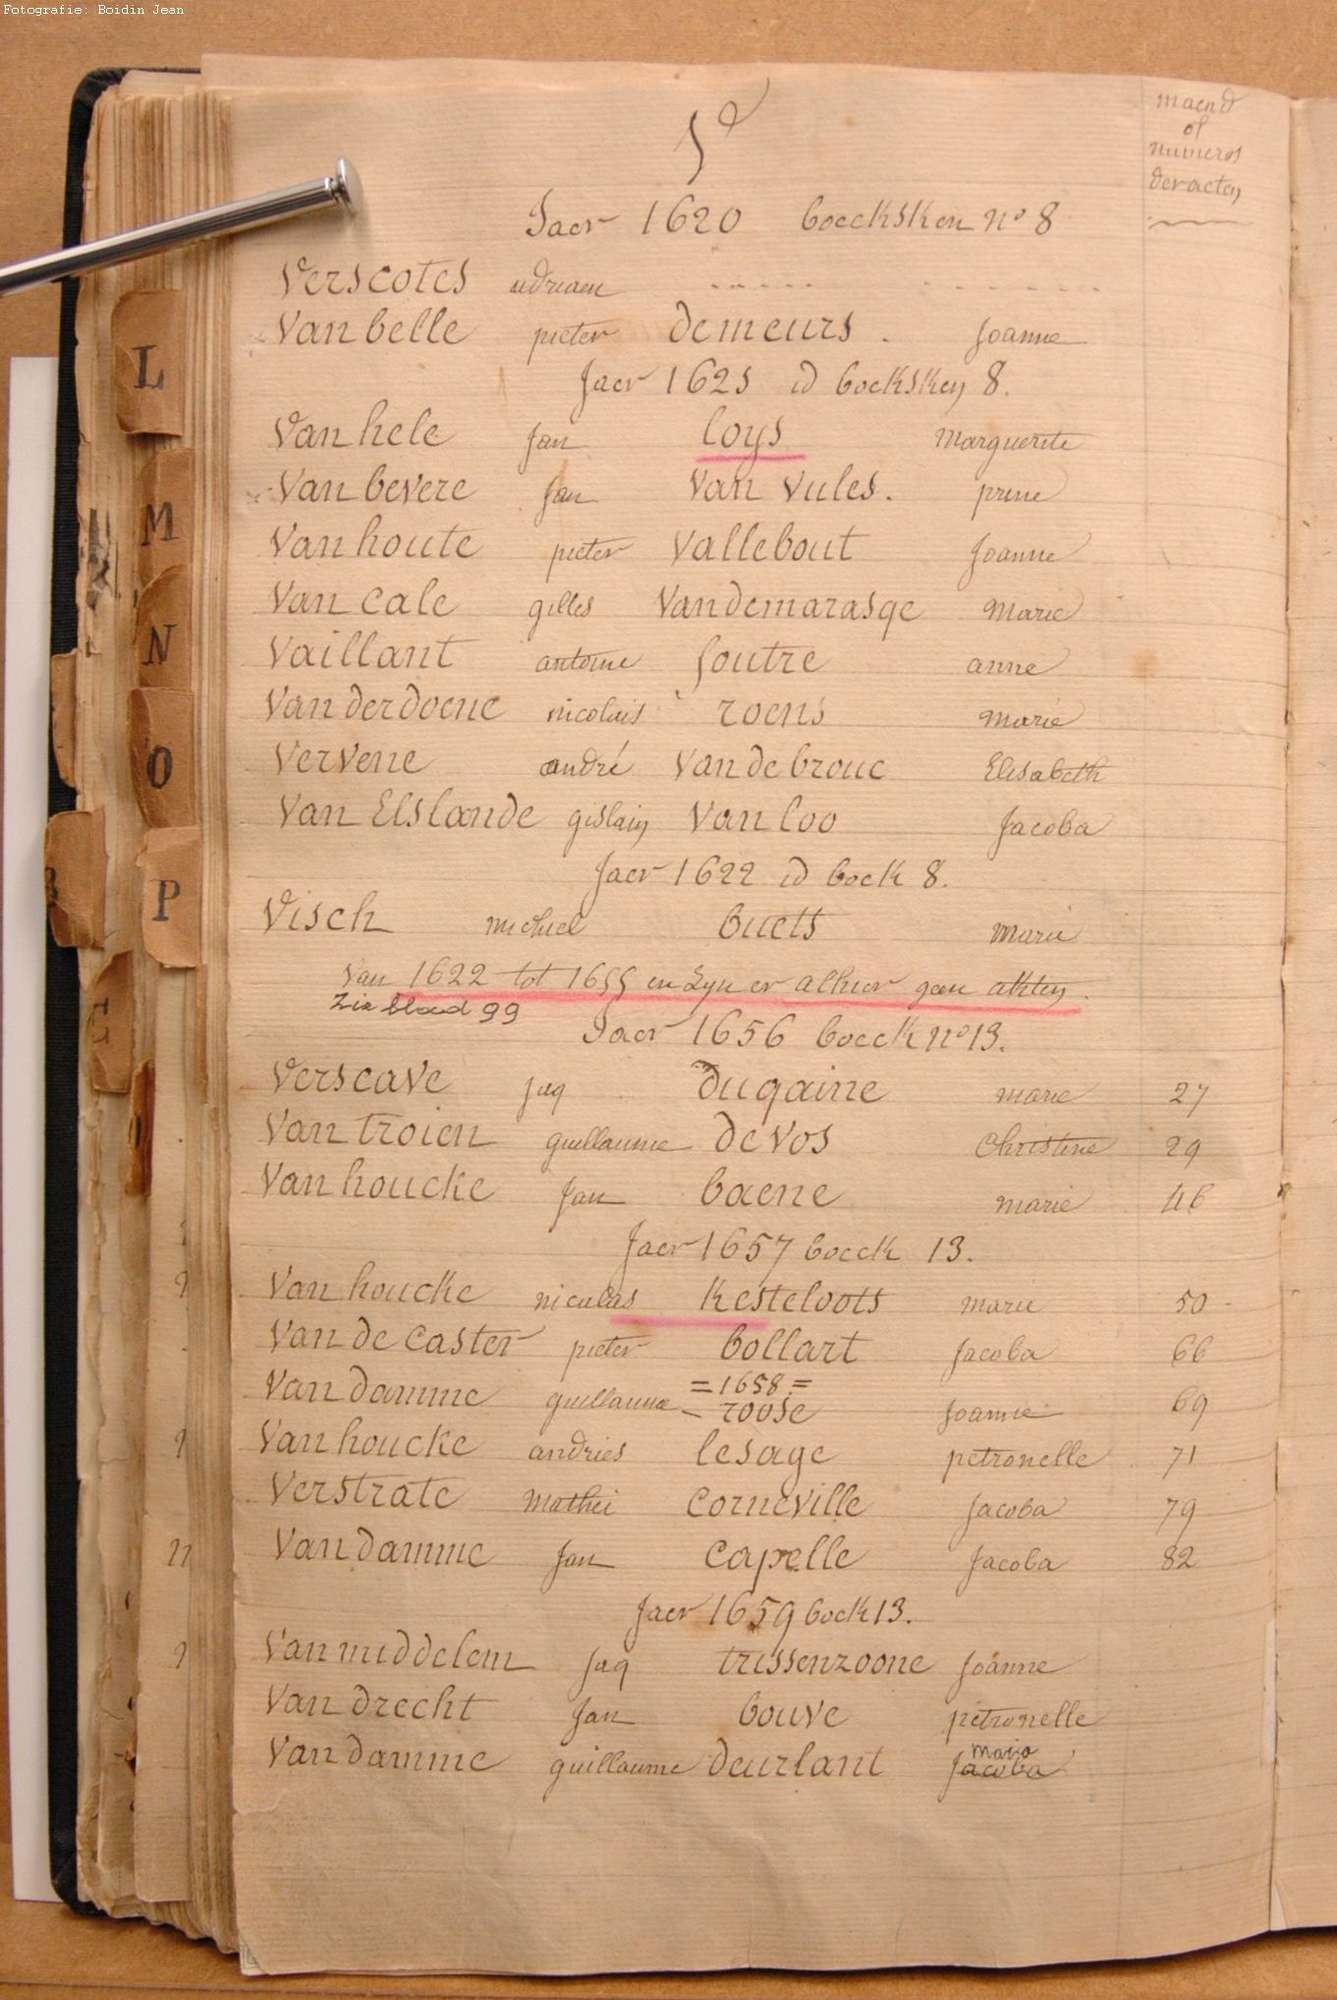 Fotografie: Boidin Jean
maend
of
numeros
der acten
Jaer 1620 boecksken n° 8
Verscotes adriaen ..... .......
Van belle pieter demeurs . Joanne
Jaer 1625 id boeksken 8.
Van hele Jan loys Marguerite
Van bevere Jan Van Vules. prine
Van houte pieter Vallebout Joanne
Van Cale gilles Vandemarasqe Marie
Vaillant antoine soutre anne
Van der doene nicolais roens Marie
Vervene andré Van de brouc Elisabeth
Van Elslande gislain Van loo Jacoba
Jaer 1622 id boek 8.
Visch michiel buets Marie
Van 1622 tot 1655 en Zyn er alhier geen akten.
Zie blad 99
Jaer 1656 boeck n° 13.
Verscave Jaq duqaine marie 27
Van troien guillaume de Vos Christine 29
Van houcke Jan baene marie 46
Jaer 1657 boeck 13.
Van houcke nicolas Kesteloots marie 50
Van de Caster pieter bollart Jacoba 66
= 1658 =
Van damme guillaume - roose Joanne 69
Van houcke andries lesage petronelle 71
Verstrate Mathei Corneville Jacoba 79
Van damme Jan Capelle Jacoba 82
Jaer 1659 boek 13.
Van middelem Jaq trissenzoone Joanne
Van drecht Jan bouve petronelle
Maria
Van damme guillaume deurlant Jacoba
L
M
N
O
P